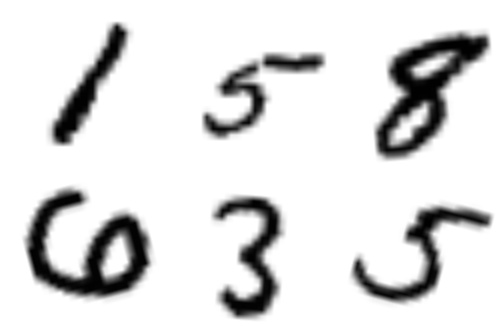 1 5 8
6 3 5